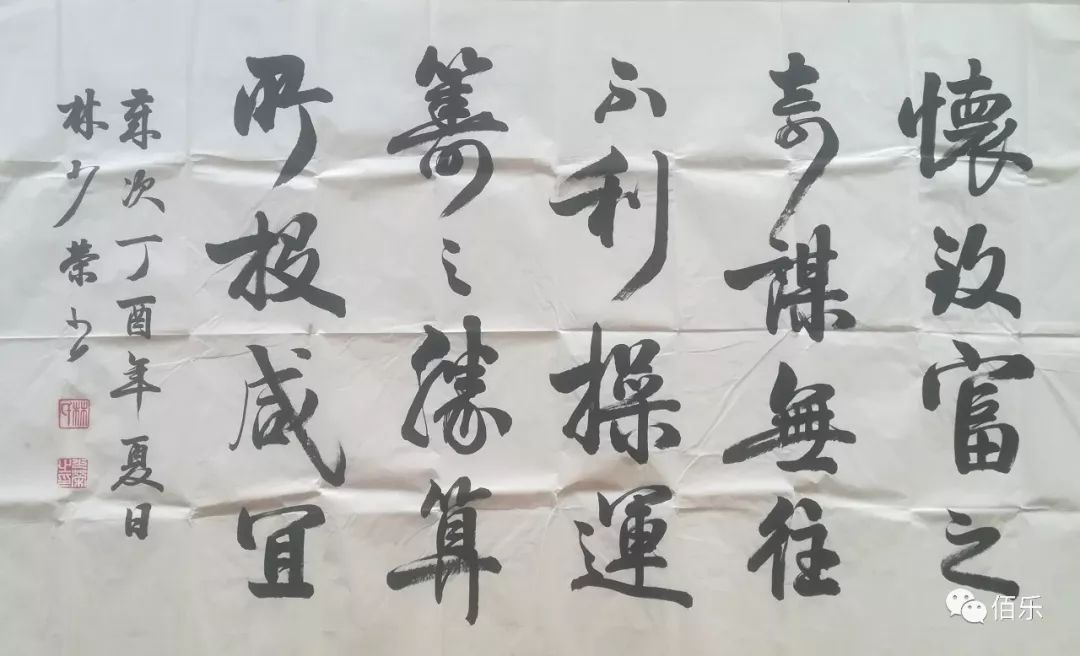 懷致富之
奇謀無往
不利操運
籌之勝算
所投咸宜
歲次丁酉年夏日
林少榮书
佰乐